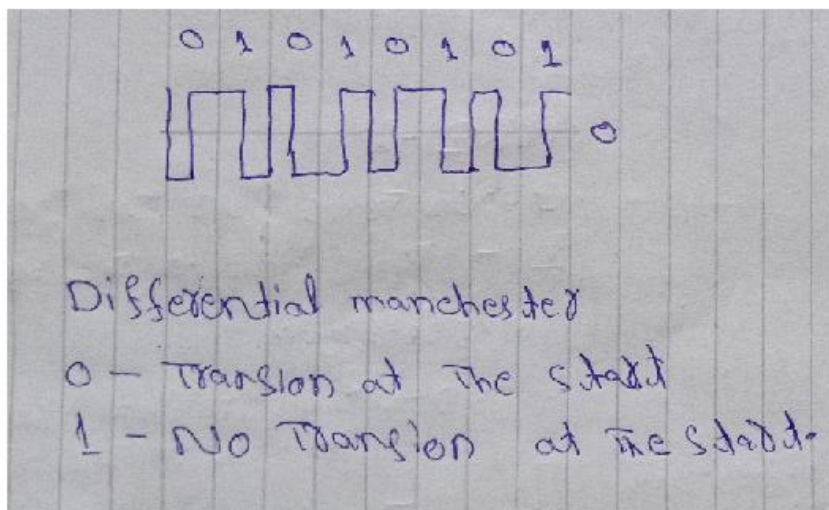 0 1 0 1 0 1 0 1
0
Differential manchester
0 - Transion at The start
1 - No Transion at The start.